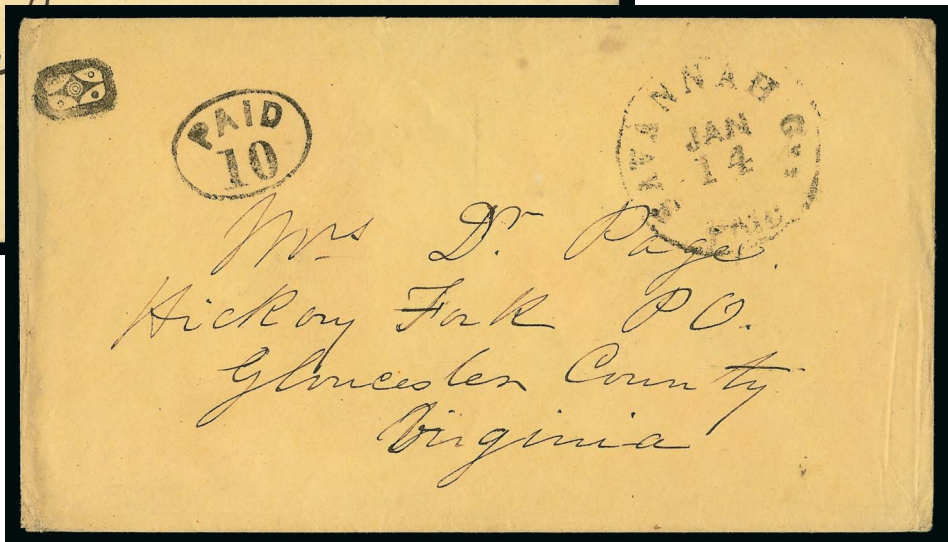 PAID
10
SAVANNAH Geo.
JAN
14
PAID
Mrs Dr Page.
Hickory Fork PO.
Gloucester County
Virginia